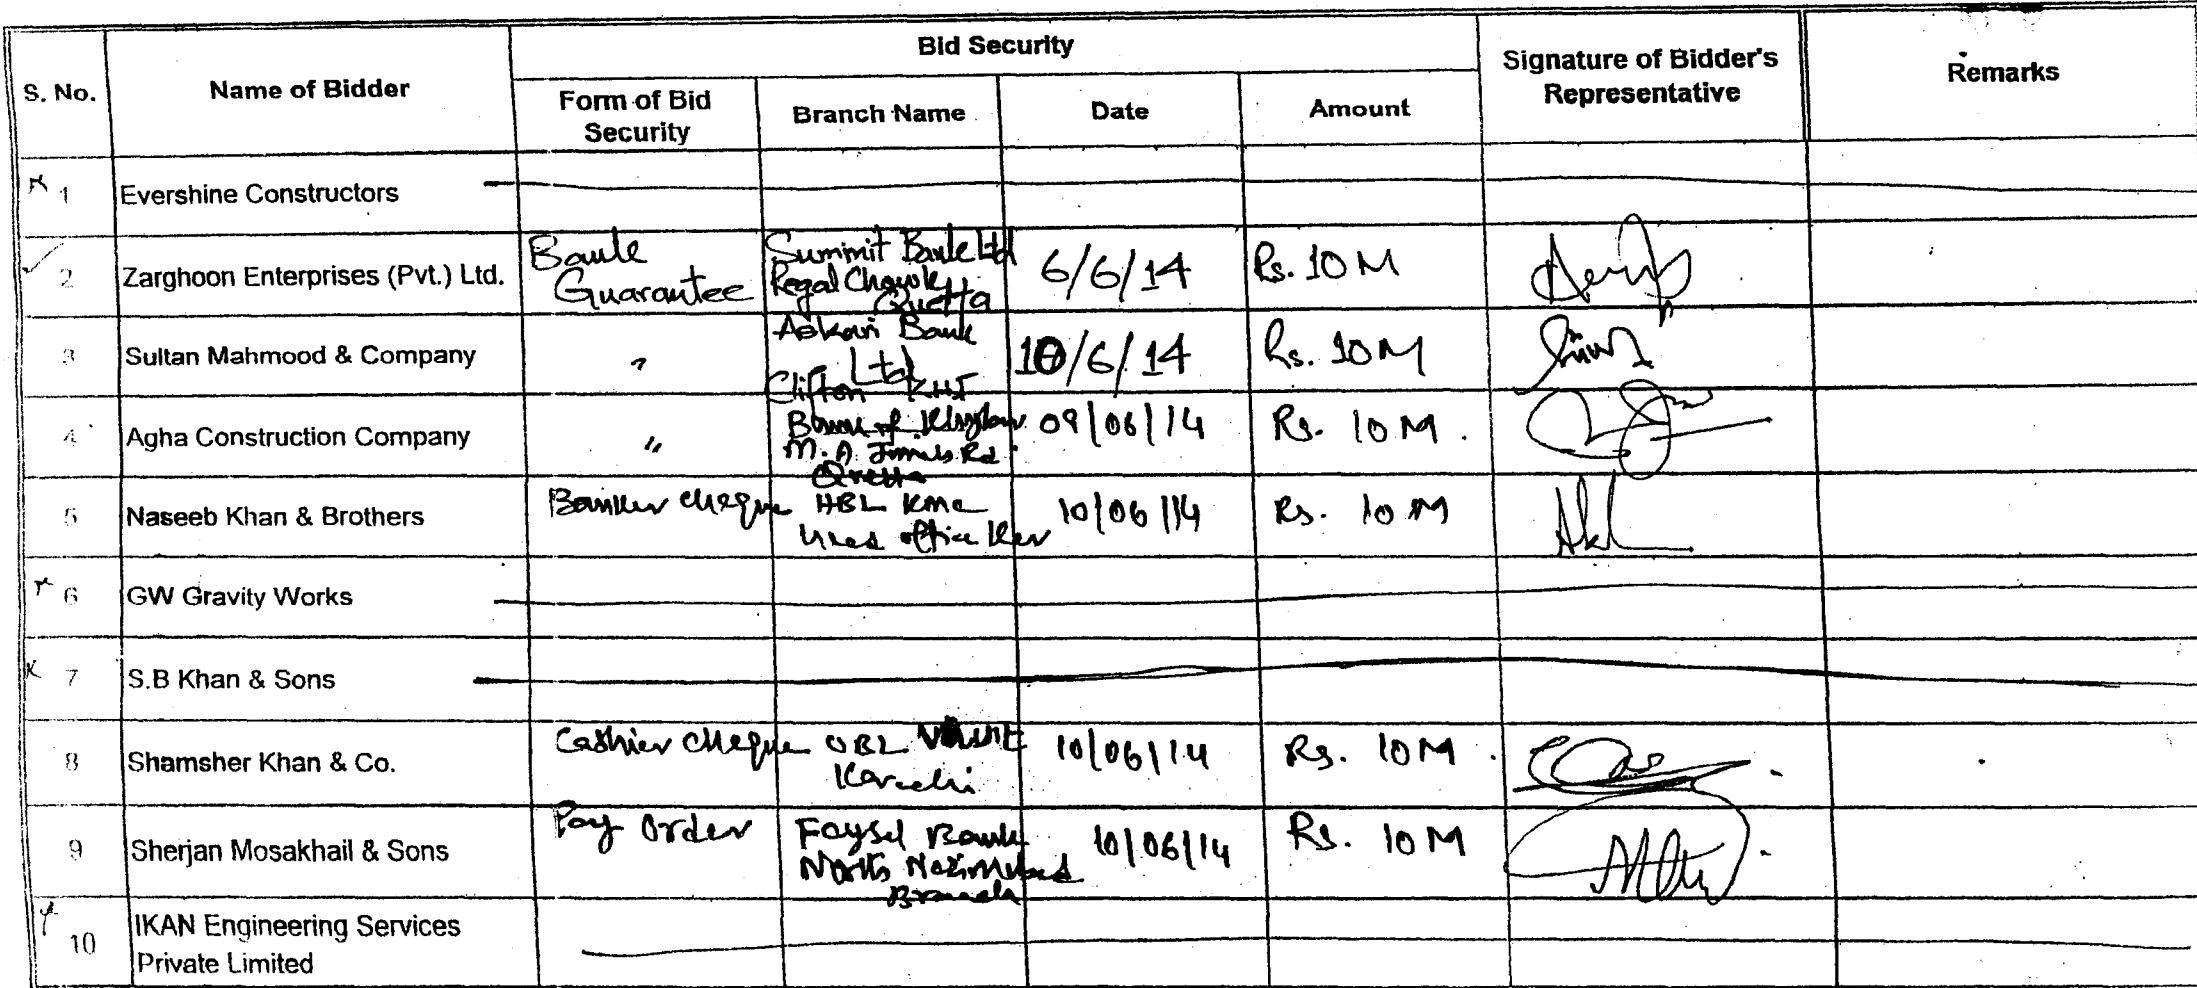 S. No.
Name of Bidder
Bid Security
Form of Bid
Security
Branch Name
Date
Amount
Signature of Bidder's
Representative
Remarks
1
Evershine Constructors
2
Zarghoon Enterprises (Pvt.) Ltd.
Bank
Guarantee
Summit Bank Ltd
Regal Chowk
Quetta
6/6/14
Rs. 10 M
3
Sultan Mahmood & Company
"
Askari Bank
Ltd
Clifton KHI
10/6/14
Rs. 10 M
4
Agha Construction Company
"
Bank of Khyber
M.A. Jinnah Rd
Quetta
09/06/14
Rs. 10 M.
5
Naseeb Khan & Brothers
Banker cheque
HBL KMC
Head office
10/06/14
Rs. 10 M
6
GW Gravity Works
7
S.B Khan & Sons
8
Shamsher Khan & Co.
Cashier cheque
UBL
Karachi
10/06/14
Rs. 10 M.
9
Sherjan Mosakhail & Sons
Pay Order
Faysal Bank
North Nazimabad
Branch
10/06/14
Rs. 10 M
10
IKAN Engineering Services
Private Limited